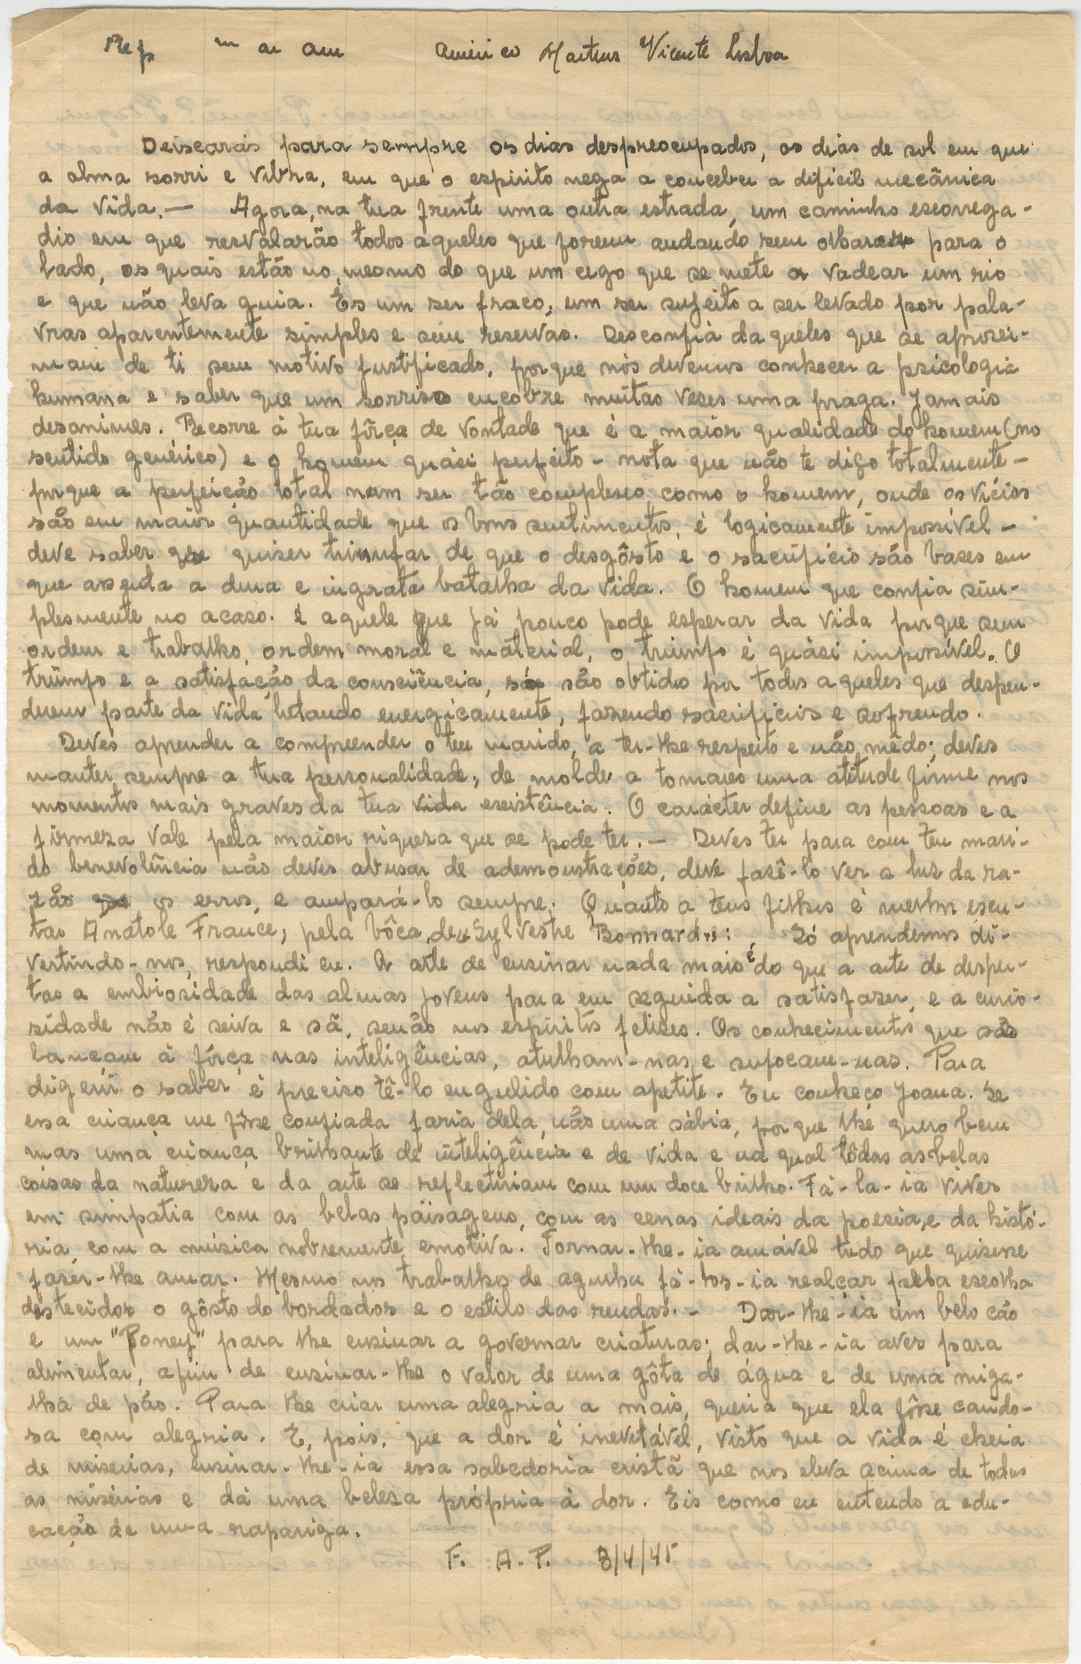 Rep m ar am Américo Martins Vicente Lisboa
Deixarás para sempre os dias despreocupados, os dias de sol em que
a alma sorri e vibra, em que o espírito nega a conceber a dificil mecânica
da vida. — Agora, na tua frente uma outra estrada, um caminho escorrega-
dio em que resvalarão todos aqueles que forem andando sem olharem para o
lado, os quais estão no mesmo do que um cego que se mete a vadear um rio
e que não leva guia. És um ser fraco, um ser sujeito a ser levado por pala-
vras aparentemente simples e sem reservas. Desconfia daqueles que se aproxi-
mam de ti sem motivo justificado, porque nós devemos conhecer a psicologia
humana e saber que um sorriso encobre muitas vezes uma praga. Jamais
desanimes. Recorre à tua fôrça de vontade que é a maior qualidade do homem (no
sentido genérico) e o homem quási perfeito - nota que não te digo totalmente -
porque a perfeição total num ser tão complexo como o homem, onde os vícios
são em maior quantidade que os bons sentimentos, é logicamente impossível -
deve saber que quiser triunfar de que o desgôsto e o sacrifício são bases em
que assenta a dura e ingrata batalha da vida. O homem que confia sim-
plesmente no acaso. é aquele que já pouco pode esperar da vida porque sem
ordem e trabalho, ordem moral e material, o triunfo é quási impossível. O
triunfo e a satisfação da consciência, só são obtidos por todos aqueles que despen-
derem parte da vida lutando energicamente, fazendo sacrifícios e sofrendo.
Deves aprender a compreender o teu marido, a ter-lhe respeito e não mêdo; deves
manter sempre a tua personalidade, de molde a tomares uma atitude firme nos
momentos mais graves da tua vida existência. O carácter define as pessoas e a
firmeza vale pela maior riqueza que se pode ter. — Deves ter para com teu mari-
do benevolência não deves abusar de ademonstrações, deve fazê-lo ver a luz da ra-
zão os erros, e ampará-lo sempre. Quanto a teus filhos é melhor escu-
tar Anatole France, pela bôca de Sylvestre Bonnard: Só aprendemos di-
vertindo-nos, respondi eu. A arte de ensinar nada mais é do que a arte de desper-
tar a embiosidade das almas jovens para em seguida a satisfazer, e a curio-
sidade não é seiva e sã, senão nos espíritos felizes. Os conhecimentos que são
lançam à fôrça nas inteligências, atulham-nas e sufocam-nas. Para
digerir o saber é preciso tê-lo engulido com apetite. Eu conheço Joana. Se
essa criança me fôsse confiada faria dela, não uma sábia, porque lhe quero bem
mas uma criança brilhante de inteligência e de vida e na qual tôdas as belas
coisas da natureza e da arte se reflectiriam com um doce brilho. Fá-la-ia viver
em simpatia com as belas paisagens, com as cenas ideais da poesia, e da histó-
ria, com a música nobremente emotiva. Tornar-lhe-ia amável tudo que quisesse
fazer-lhe amar. Mesmo nos trabalhos de agulha fá-los-ia realçar pela escolha
dos tecidos o gôsto do bordados e o estilo das rendas. - Dar-lhe-ia um belo cão
e um "Poney" para lhe ensinar a governar criaturas; dar-lhe-ia aves para
alimentar, afim de ensinar-lhe o valor de uma gôta de água e de uma miga-
lha de pão. Para lhe criar uma alegria a mais, queria que ela fôsse carido-
sa com alegria. E, pois, que a dor é inevitável, visto que a vida é cheia
de misérias, ensinar-lhe-ia essa sabedoria cristã que nos eleva acima de todas
as misérias e dá uma beleza própria à dor. Eis como eu entendo a edu-
cação de uma rapariga.
F. A. P. 3/4/45